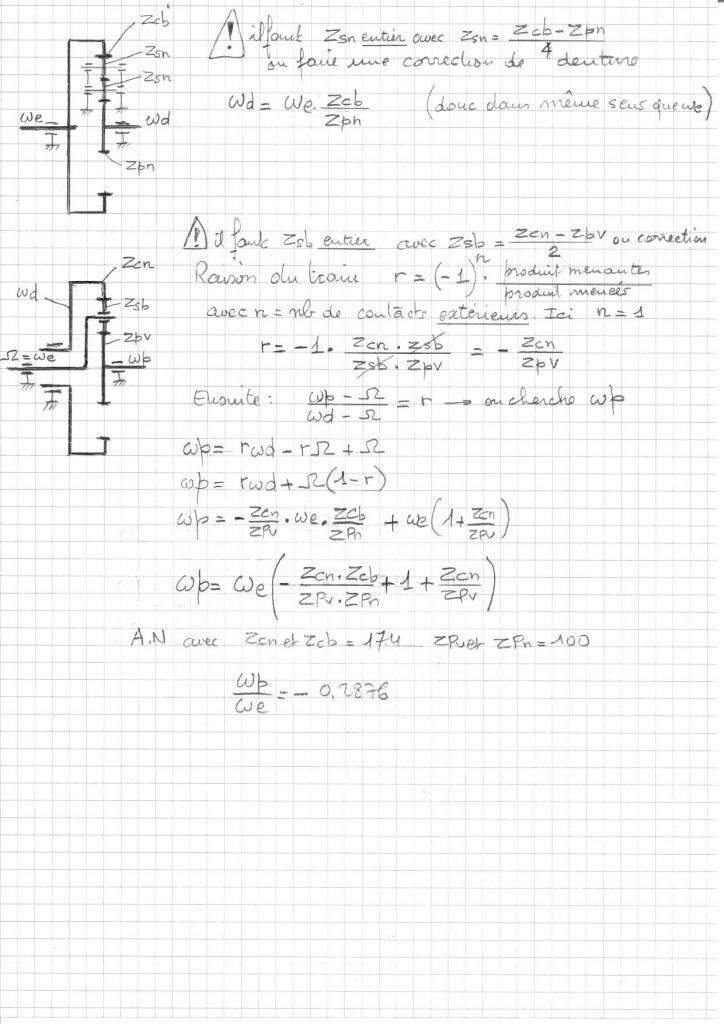 Zcb
Zsn
Zsn
ωe
ωd
Zpn
! il faut Zsn entier avec Zsn = (Zcb - Zpn)/4
ou faire une correction de denture
ωd = ωe . Zcb/Zpn (donc dans même sens que ωe)
Zcn
ωd
Zsb
Zpv
Ω=ωe
ωp
! il faut Zsb entier avec Zsb = (Zcn - Zpv)/2 ou correction
Raison du train r = (-1)^n . produit menantes/produit menées
avec n = nb de contacts extérieurs. Ici n = 1
r = -1 . (Zcn . Zsb)/(Zsb . Zpv) = - Zcn/Zpv
Ensuite : (ωp - Ω)/(ωd - Ω) = r → on cherche ωp
ωp = rωd - rΩ + Ω
ωp = rωd + Ω(1-r)
ωp = - Zcn/Zpv . ωe . Zcb/Zpn + ωe(1 + Zcn/Zpv)
ωp = ωe(- (Zcn . Zcb)/(Zpv . Zpn) + 1 + Zcn/Zpv)
A.N avec Zcn et Zcb = 174 Zpv et Zpn = 100
ωp/ωe = - 0,2876